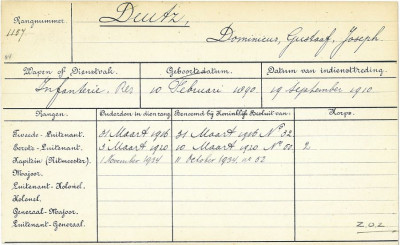 Rangnummer. Deutz,
1187 Dominicus, Gustaaf, Joseph
Wapen of Dienstvak. Geboortedatum. Datum van indiensttreding.
Infanterie. Res 10 Februari 1890. 19 September 1910.
Rangen. Ouderdom in dien rang. Benoemd bij Koninklijk Besluit van: Korps.
Tweede-Luitenant. 31 Maart 1916 31 Maart 1916 No 32.
Eerste-Luitenant. 3 Maart 1920 10 Maart 1920 No 50. 2
Kapitein (Ritmeester). 1 November 1934 11 October 1934 no 02
Majoor.
Luitenant-Kolonel.
Kolonel.
Generaal-Majoor.
Luitenant-Generaal. Z.O.Z.